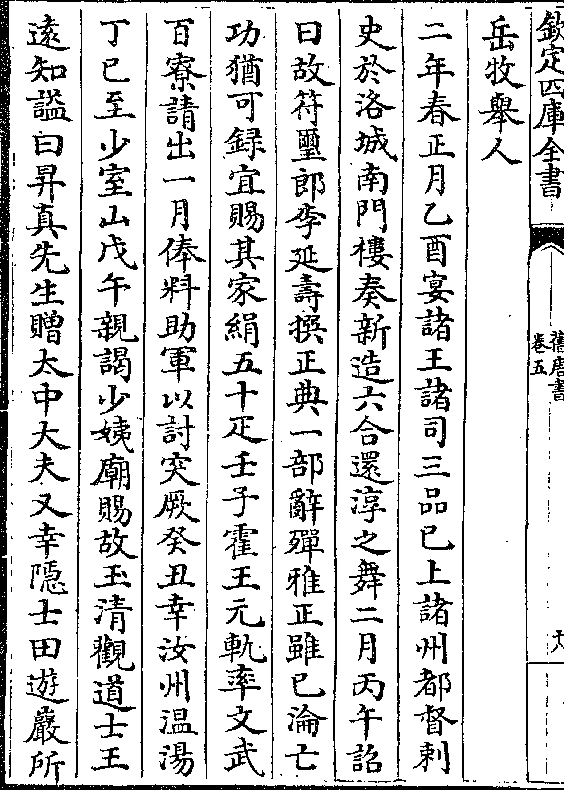 欽定四庫全書
舊唐書
卷五
岳牧舉人
二年春正月乙酉宴諸王諸司三品已上諸州都督刺
史於洛城南門樓奏新造六合還淳之舞二月丙午詔
曰故符璽郎李延壽撰正典一部辭殫雅正雖已淪亡
功猶可録宜賜其家絹五十疋壬子霍王元軌率文武
百寮請出一月俸料助軍以討突厥癸丑幸汝州温湯
丁巳至少室山戊午親謁少姨廟賜故玉清觀道士王
遠知謚曰昇真先生贈太中大夫又幸隱士田遊巖所